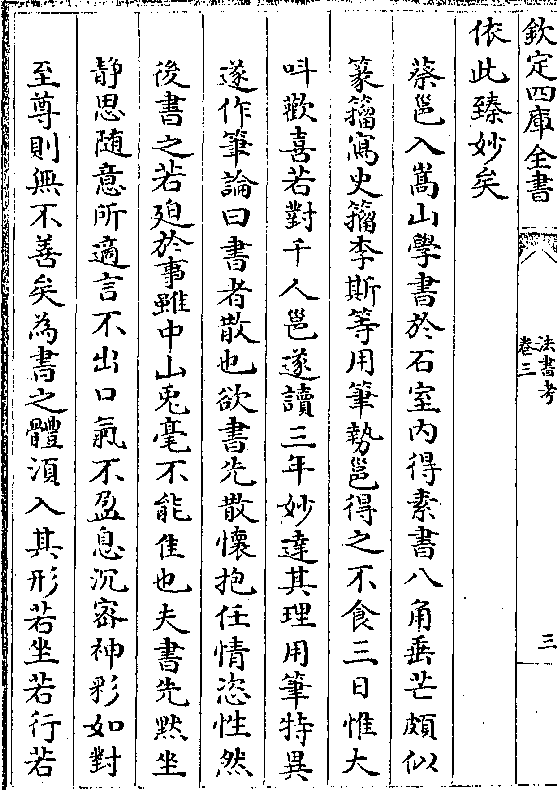 欽定四庫全書
法書考
卷三
三
依此臻妙矣
蔡邕入嵩山學書於石室内得素書八角垂芒頗似
篆籀寫史籀李斯等用筆勢邕得之不食三日惟大
呌歡喜若對千人邕遂讀三年妙達其理用筆特異
遂作筆論曰書者散也欲書先散懷抱任情恣性然
後書之若廹於事雖中山兎毫不能佳也夫書先黙坐
靜思随意所適言不出口氣不盈息沉宻神彩如對
至尊則無不善矣為書之體湏入其形若坐若行若